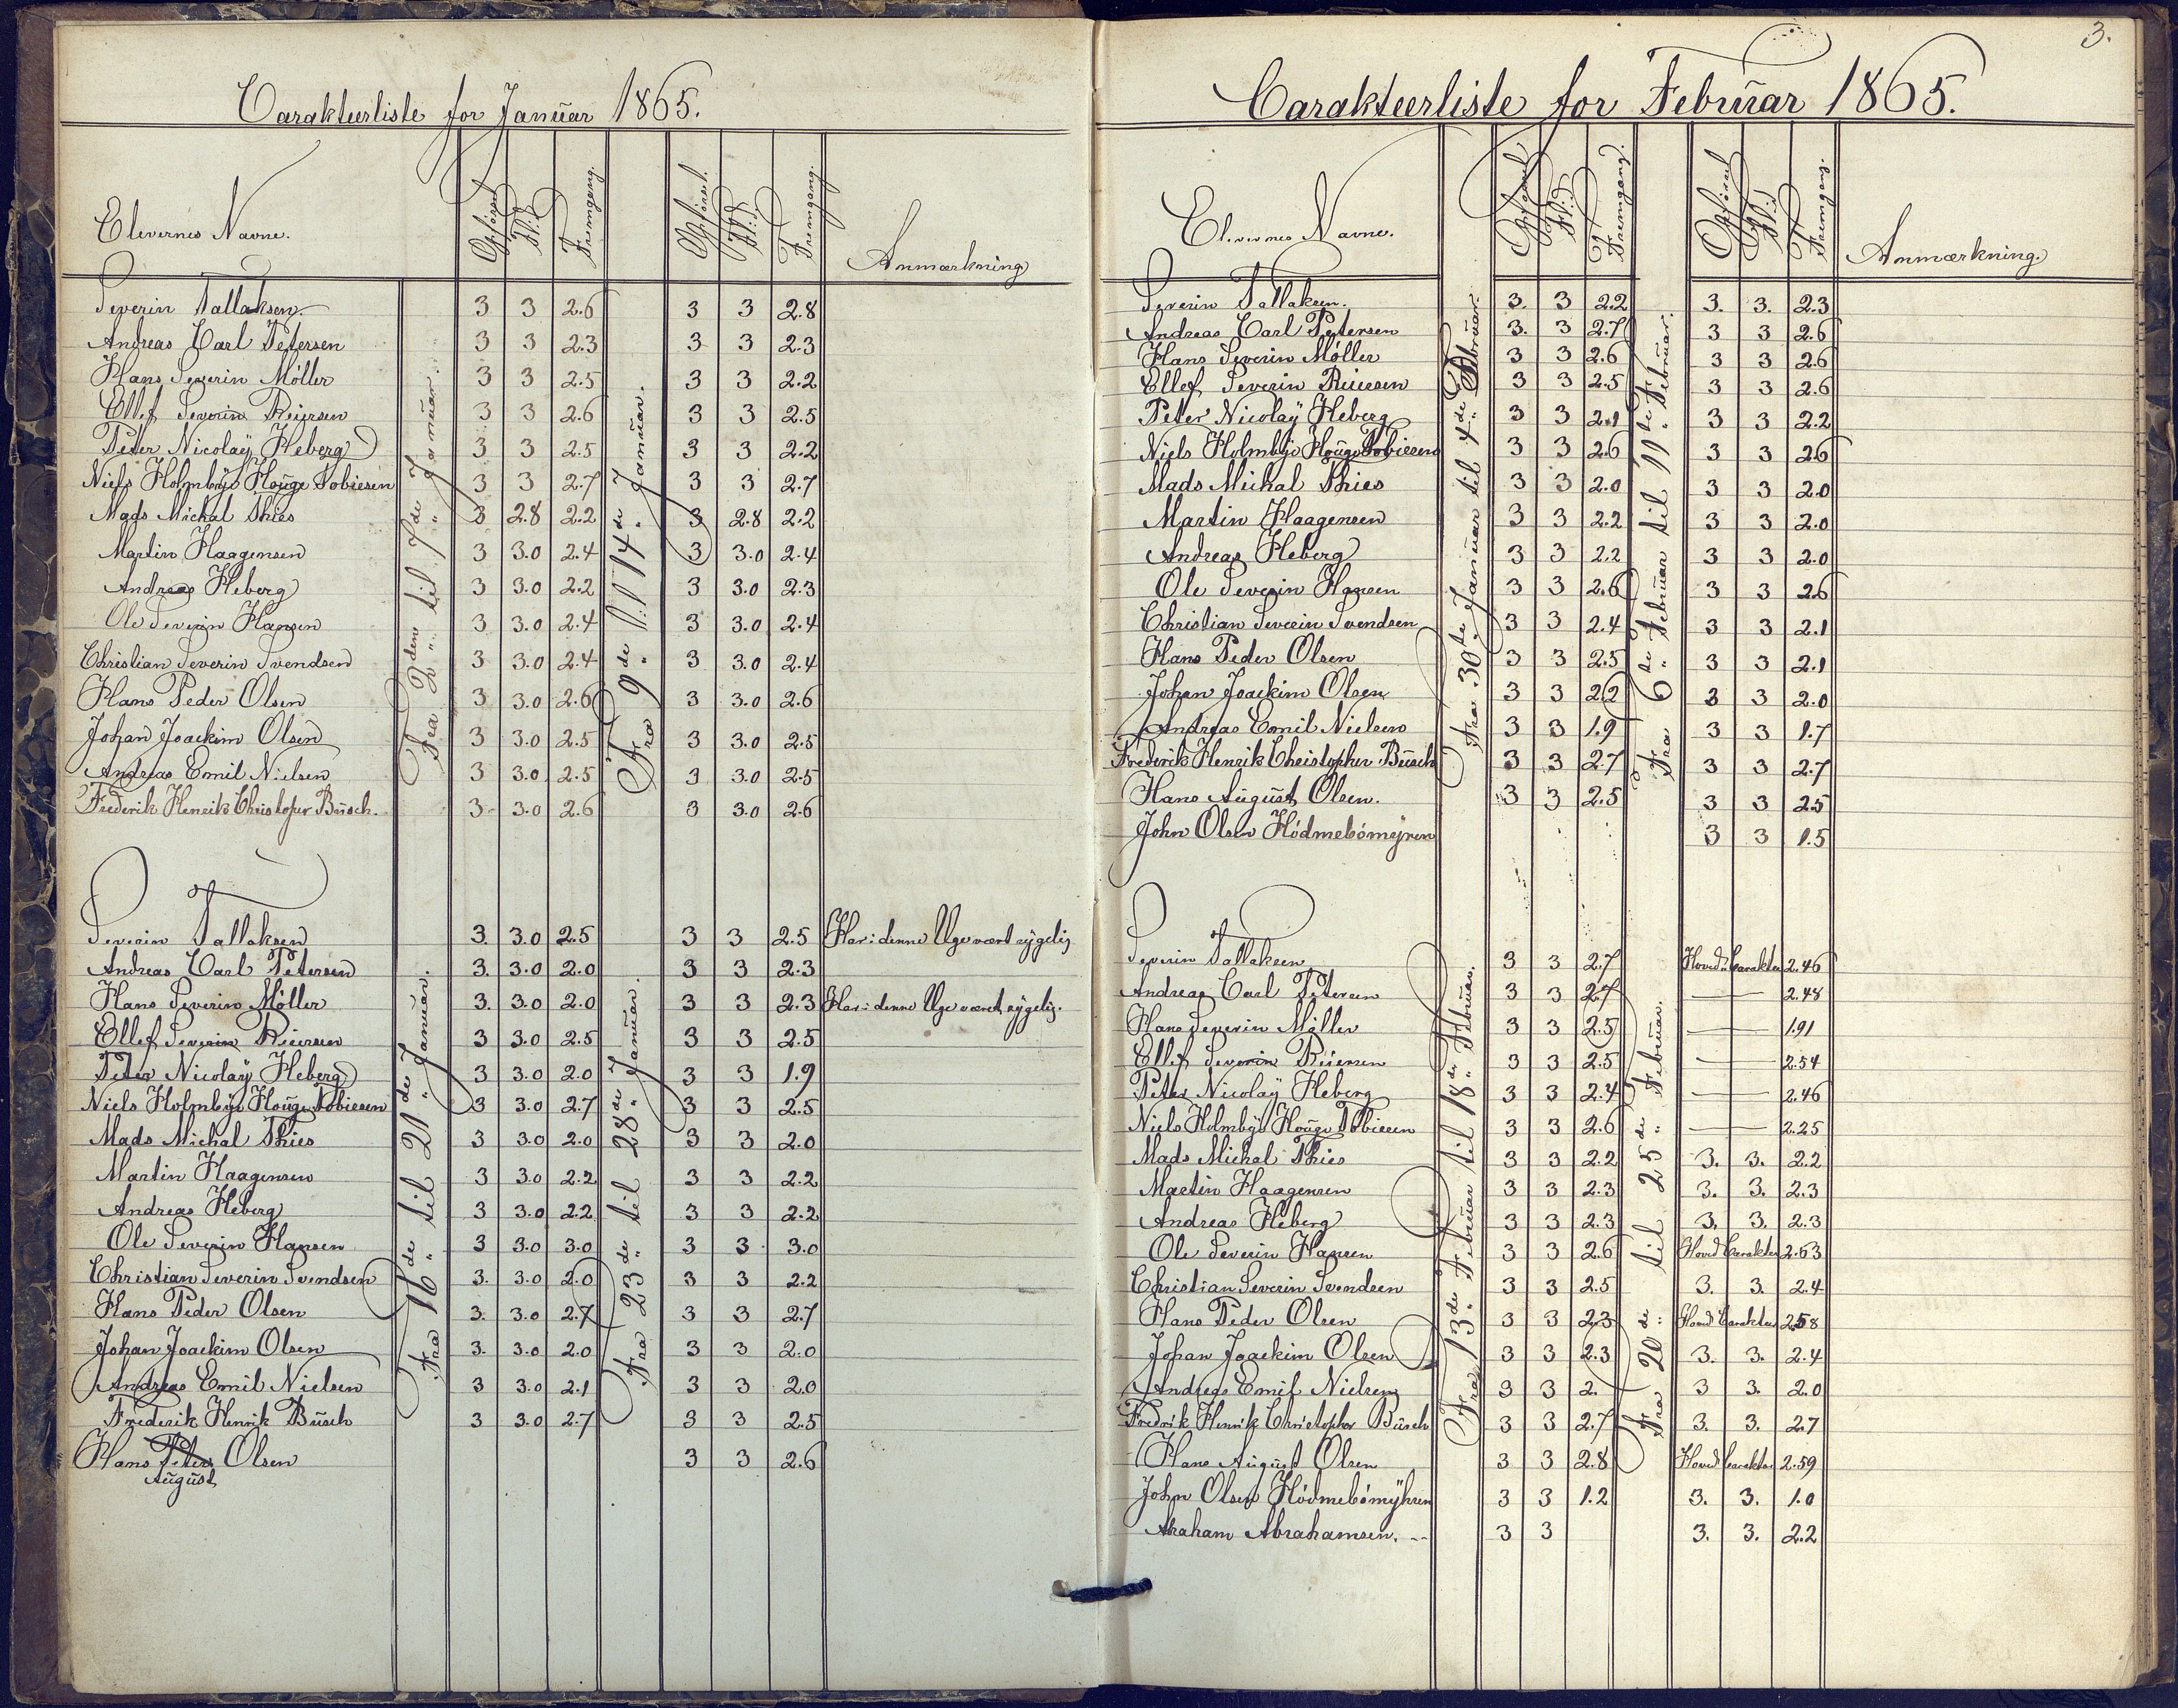 Carakteerliste for Januar 1865.
Elevernes Navne. Opførsel Flid Fremgang. Opførsel. Flid Fremgang. Anmærkning
Fra 2den til 7de Januar.
Fra 9de til 14de Januar.
Severin Tallaksen 3 3 2.6 3 3 2.8
Andreas Carl Petersen 3 3 2.3 3 3 2.3
Hans Severin Möller 3 3 2.5 3 3 2.2
Ellef Severin Reiersen 3 3 2.6 3 3 2.5
Peter Nicolaÿ Heberg 3 3 2.5 3 3 2.2
Niels Holmbÿe Houge Tobiesen 3 3 2.7 3 3 2.7
Mads Michal Thies 3 2.8 2.2 3 2.8 2.2
Martin Haagensen 3 3.0 2.4 3 3.0 2.4
Andreas Heberg 3 3.0 2.2 3 3.0 2.3
Ole Severin Hansen 3 3.0 2.4 3 3.0 2.4
Christian Severin Svendsen 3 3.0 2.4 3 3.0 2.4
Hans Peder Olsen 3 3.0 2.6 3 3.0 2.6
Johan Joackim Olsen 3 3.0 2.5 3 3.0 2.5
Andreas Emil Nielsen 3 3.0 2.5 3 3.0 2.5
Frederik Henrik Christofer Busch. 3 3.0 2.6 3 3.0 2.6
Fra 16de til 21de Januar.
Fra 23de til 28de Januar.
Severin Tallaksen 3. 3.0 2.5 3 3 2.5 Har i denne Uge været sygelig
Andreas Carl Petersen 3. 3.0 2.0 3 3 2.3
Hans Severin Möller 3. 3.0 2.0 3 3 2.3 Har i denne Uge været sygelig.
Ellef Severin Reiersen 3 3.0 2.5 3 3 2.5
Peter Nicolaÿ Heberg 3 3.0 2.0 3 3 1.9
Niels Holmbÿe Houge Tobiesen 3 3.0 2.7 3 3 2.5
Mads Michal Thies 3 3.0 2.0 3 3 2.0
Martin Haagensen 3 3.0 2.2 3 3 2.2
Andreas Heberg 3 3.0 2.2 3 3 2.2
Ole Severin Hansen 3 3.0 3.0 3 3 3.0
Christian Severin Svendsen 3. 3.0 2.0 3 3 2.2
Hans Peder Olsen 3. 3.0 2.7 3 3 2.7
Johan Joackim Olsen 3. 3.0 2.0 3 3 2.0
Andreas Emil Nielsen 3 3.0 2.1 3 3 2.0
Frederik Henrik Busch 3 3.0 2.7 3 3 2.5
Hans Peter Olsen 3 3 2.6
August
3.
Carakteerliste for Februar 1865.
Elevernes Navne. Opførsel Flid Fremgang. Opførsel Flid Fremgang. Anmærkning.
Fra 30te Januar til 4de Februar.
Fra 6te Februar til 11te Februar.
Severin Tallaksen. 3. 3 2.2 3. 3. 2.3
Andreas Carl Petersen 3. 3 2.7 3 3 2.6
Hans Severin Möller 3 3 2.6 3 3 2.6
Ellef Severin Reiersen 3 3 2.5 3 3 2.6
Peter Nicolaÿ Heberg 3 3 2.1 3 3 2.2
Niels Holmbÿe Houge Tobiesen 3 3 2.6 3 3 2.6
Mads Michal Thies 3 3 2.0 3 3 2.0
Martin Haagensen 3 3 2.2 3 3 2.0
Andreas Heberg 3 3 2.2 3 3 2.0
Ole Severin Hansen 3 3 2.6 3 3 2.6
Christian Severin Svendsen 3 3 2.4 3 3 2.1
Hans Peder Olsen 3 3 2.5 3 3 2.1
Johan Joackim Olsen 3 3 2.2 3 3 2.0
Andreas Emil Nielsen 3 3 1.9 3 3 1.7
Frederik Henrik Christopher Busch 3 3 2.7 3 3 2.7
Hans August Olsen. 3 3 2.5 3 3 2.5
John Olsen Hödmebömÿren 3 3 1.5
Fra 13de Februar til 18de Februar.
Fra 20de til 25de Februar.
Severin Tallaksen 3 3 2.7 Hoved Carakter 2.46
Andreas Carl Petersen 3 3 2.7 — 2.48
Hans Severin Möller 3 3 2.5 — 1.91
Ellef Severin Reiersen 3 3 2.5 — 2.54
Peter Nicolaÿ Heberg 3 3 2.4 — 2.46
Niels Holmbÿe Houge Tobiesen 3 3 2.6 — 2.25
Mads Michal Thies 3 3 2.2 3. 3. 2.2
Martin Haagensen 3 3 2.3 3. 3. 2.3
Andreas Heberg 3 3 2.3 3. 3. 2.3
Ole Severin Hansen 3 3 2.6 Hoved Carakter 2.63
Christian Severin Svendsen 3 3 2.5 3. 3. 2.4
Hans Peder Olsen 3 3 2.3 Hoved Carakter 2.58
Johan Joackim Olsen 3 3 2.3 3. 3. 2.4
Andreas Emil Nielsen 3 3 2. 3 3. 2.0
Fredrik Henrik Christopher Busch 3 3 2.7 3. 3. 2.7
Hans August Olsen 3 3 2.8 Hoved Carakter 2.59
John Olsen Hödmebömÿhren 3 3 1.2 3. 3. 1.0
Abraham Abrahamsen. -- 3 3 3. 3. 2.2